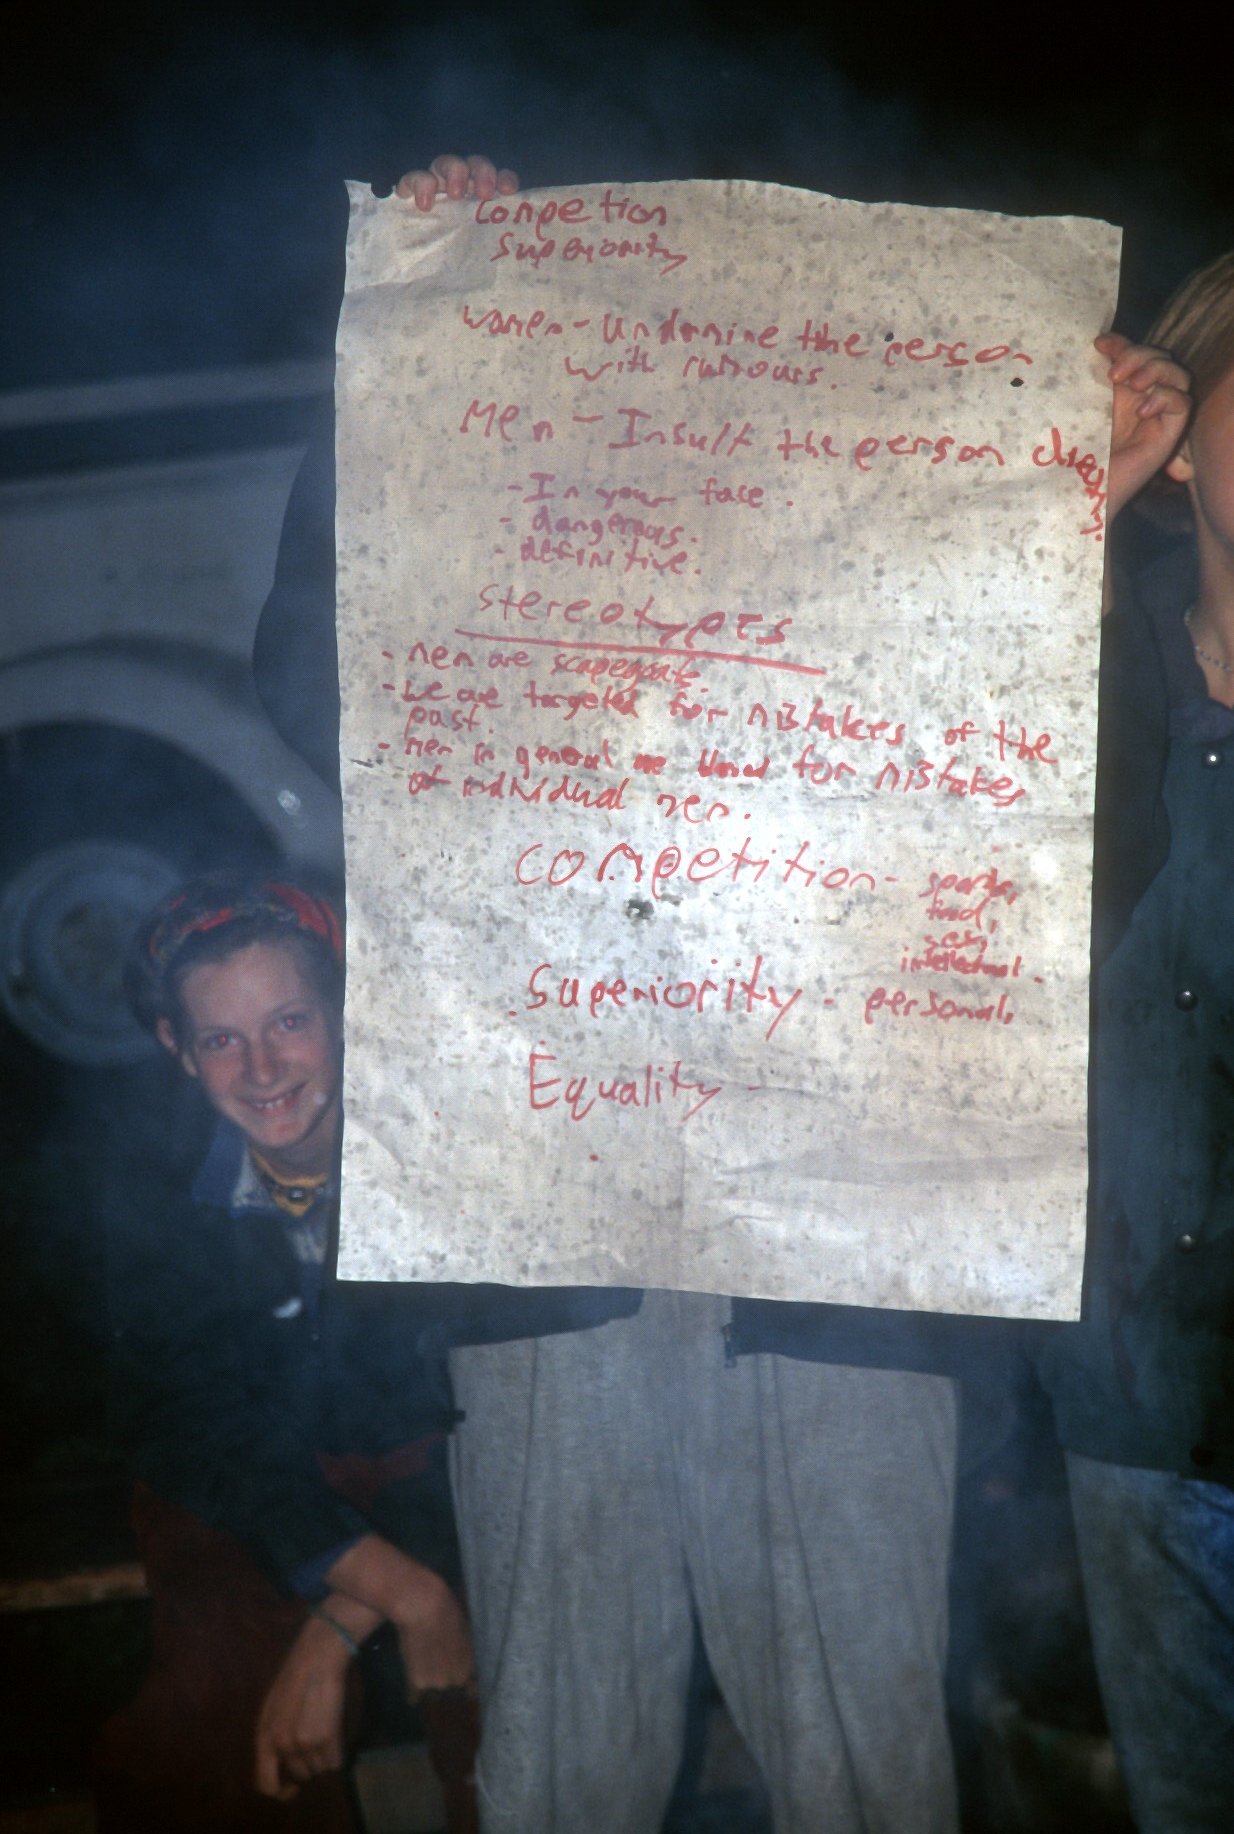 Compettion
Superiority
Women - Undermine the person
with rumours.
Men - Insult the person directly.
- In your face.
- dangerous.
- definitive.
Stereotypes
- men are scapegoats.
- we are targeted for mistakes of the
past.
- Men in general are blamed for mistakes
of individual men.
Competition - sports,
food,
sex,
intellectual.
Superiority - personal,
Equality -